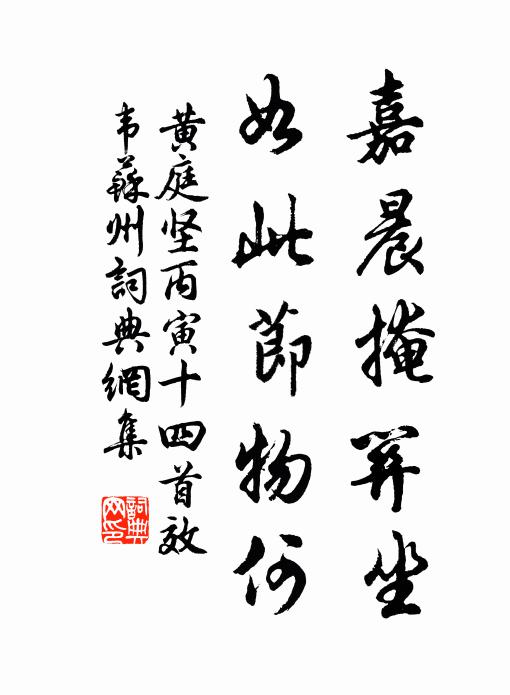 嘉晨掩關坐
如此節物何
黄庭坚丙寅十四首效
韦蘇州詞典網集
詞典网印